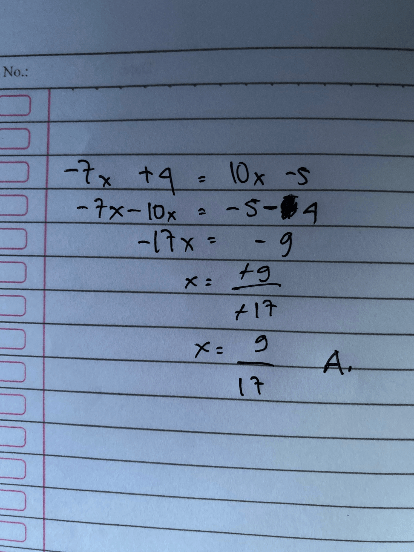 No.:
-7x +4 = 10x -5
-7x-10x = -5-4
-17x = -9
x = +9/+17
x = 9/17 A.